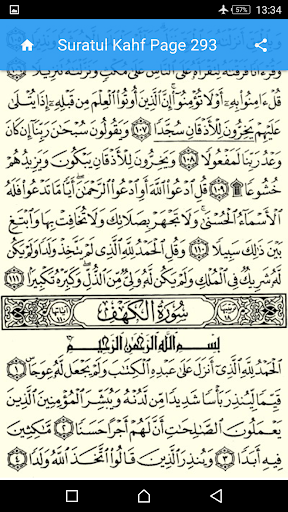 13:34
Suratul Kahf Page 293
وَقُرْءَانًا فَرَقْنَٰهُ لِتَقْرَأَهُۥ عَلَى ٱلنَّاسِ عَلَىٰ مُكْثٍ وَنَزَّلْنَٰهُ تَنزِيلًا
قُلْ ءَامِنُوا۟ بِهِۦٓ أَوْ لَا تُؤْمِنُوٓا۟ إِنَّ ٱلَّذِينَ أُوتُوا۟ ٱلْعِلْمَ مِن قَبْلِهِۦٓ إِذَا يُتْلَىٰ
عَلَيْهِمْ يَخِرُّونَ لِلْأَذْقَانِ سُجَّدًا ١٠٧ وَيَقُولُونَ سُبْحَٰنَ رَبِّنَآ إِن كَانَ
وَعْدُ رَبِّنَا لَمَفْعُولًا ١٠٨ وَيَخِرُّونَ لِلْأَذْقَانِ يَبْكُونَ وَيَزِيدُهُمْ
خُشُوعًا ۩ ١٠٩ قُلِ ٱدْعُوا۟ ٱللَّهَ أَوِ ٱدْعُوا۟ ٱلرَّحْمَٰنَ أَيًّا مَّا تَدْعُوا۟ فَلَهُ
ٱلْأَسْمَآءُ ٱلْحُسْنَىٰ وَلَا تَجْهَرْ بِصَلَاتِكَ وَلَا تُخَافِتْ بِهَا وَٱبْتَغِ
بَيْنَ ذَٰلِكَ سَبِيلًا ١١٠ وَقُلِ ٱلْحَمْدُ لِلَّهِ ٱلَّذِى لَمْ يَتَّخِذْ وَلَدًا وَلَمْ يَكُن
لَّهُۥ شَرِيكٌ فِى ٱلْمُلْكِ وَلَمْ يَكُن لَّهُۥ وَلِىٌّ مِّنَ ٱلذُّلِّ وَكَبِّرْهُ تَكْبِيرًا ١١١
سُورَةُ ٱلْكَهْفِ
بِسْمِ ٱللَّهِ ٱلرَّحْمَٰنِ ٱلرَّحِيمِ
ٱلْحَمْدُ لِلَّهِ ٱلَّذِىٓ أَنزَلَ عَلَىٰ عَبْدِهِ ٱلْكِتَٰبَ وَلَمْ يَجْعَل لَّهُۥ عِوَجَا ١
قَيِّمًا لِّيُنذِرَ بَأْسًا شَدِيدًا مِّن لَّدُنْهُ وَيُبَشِّرَ ٱلْمُؤْمِنِينَ ٱلَّذِينَ
يَعْمَلُونَ ٱلصَّٰلِحَٰتِ أَنَّ لَهُمْ أَجْرًا حَسَنًا ٢ مَّٰكِثِينَ
فِيهِ أَبَدًا ٣ وَيُنذِرَ ٱلَّذِينَ قَالُوا۟ ٱتَّخَذَ ٱللَّهُ وَلَدًا ٤